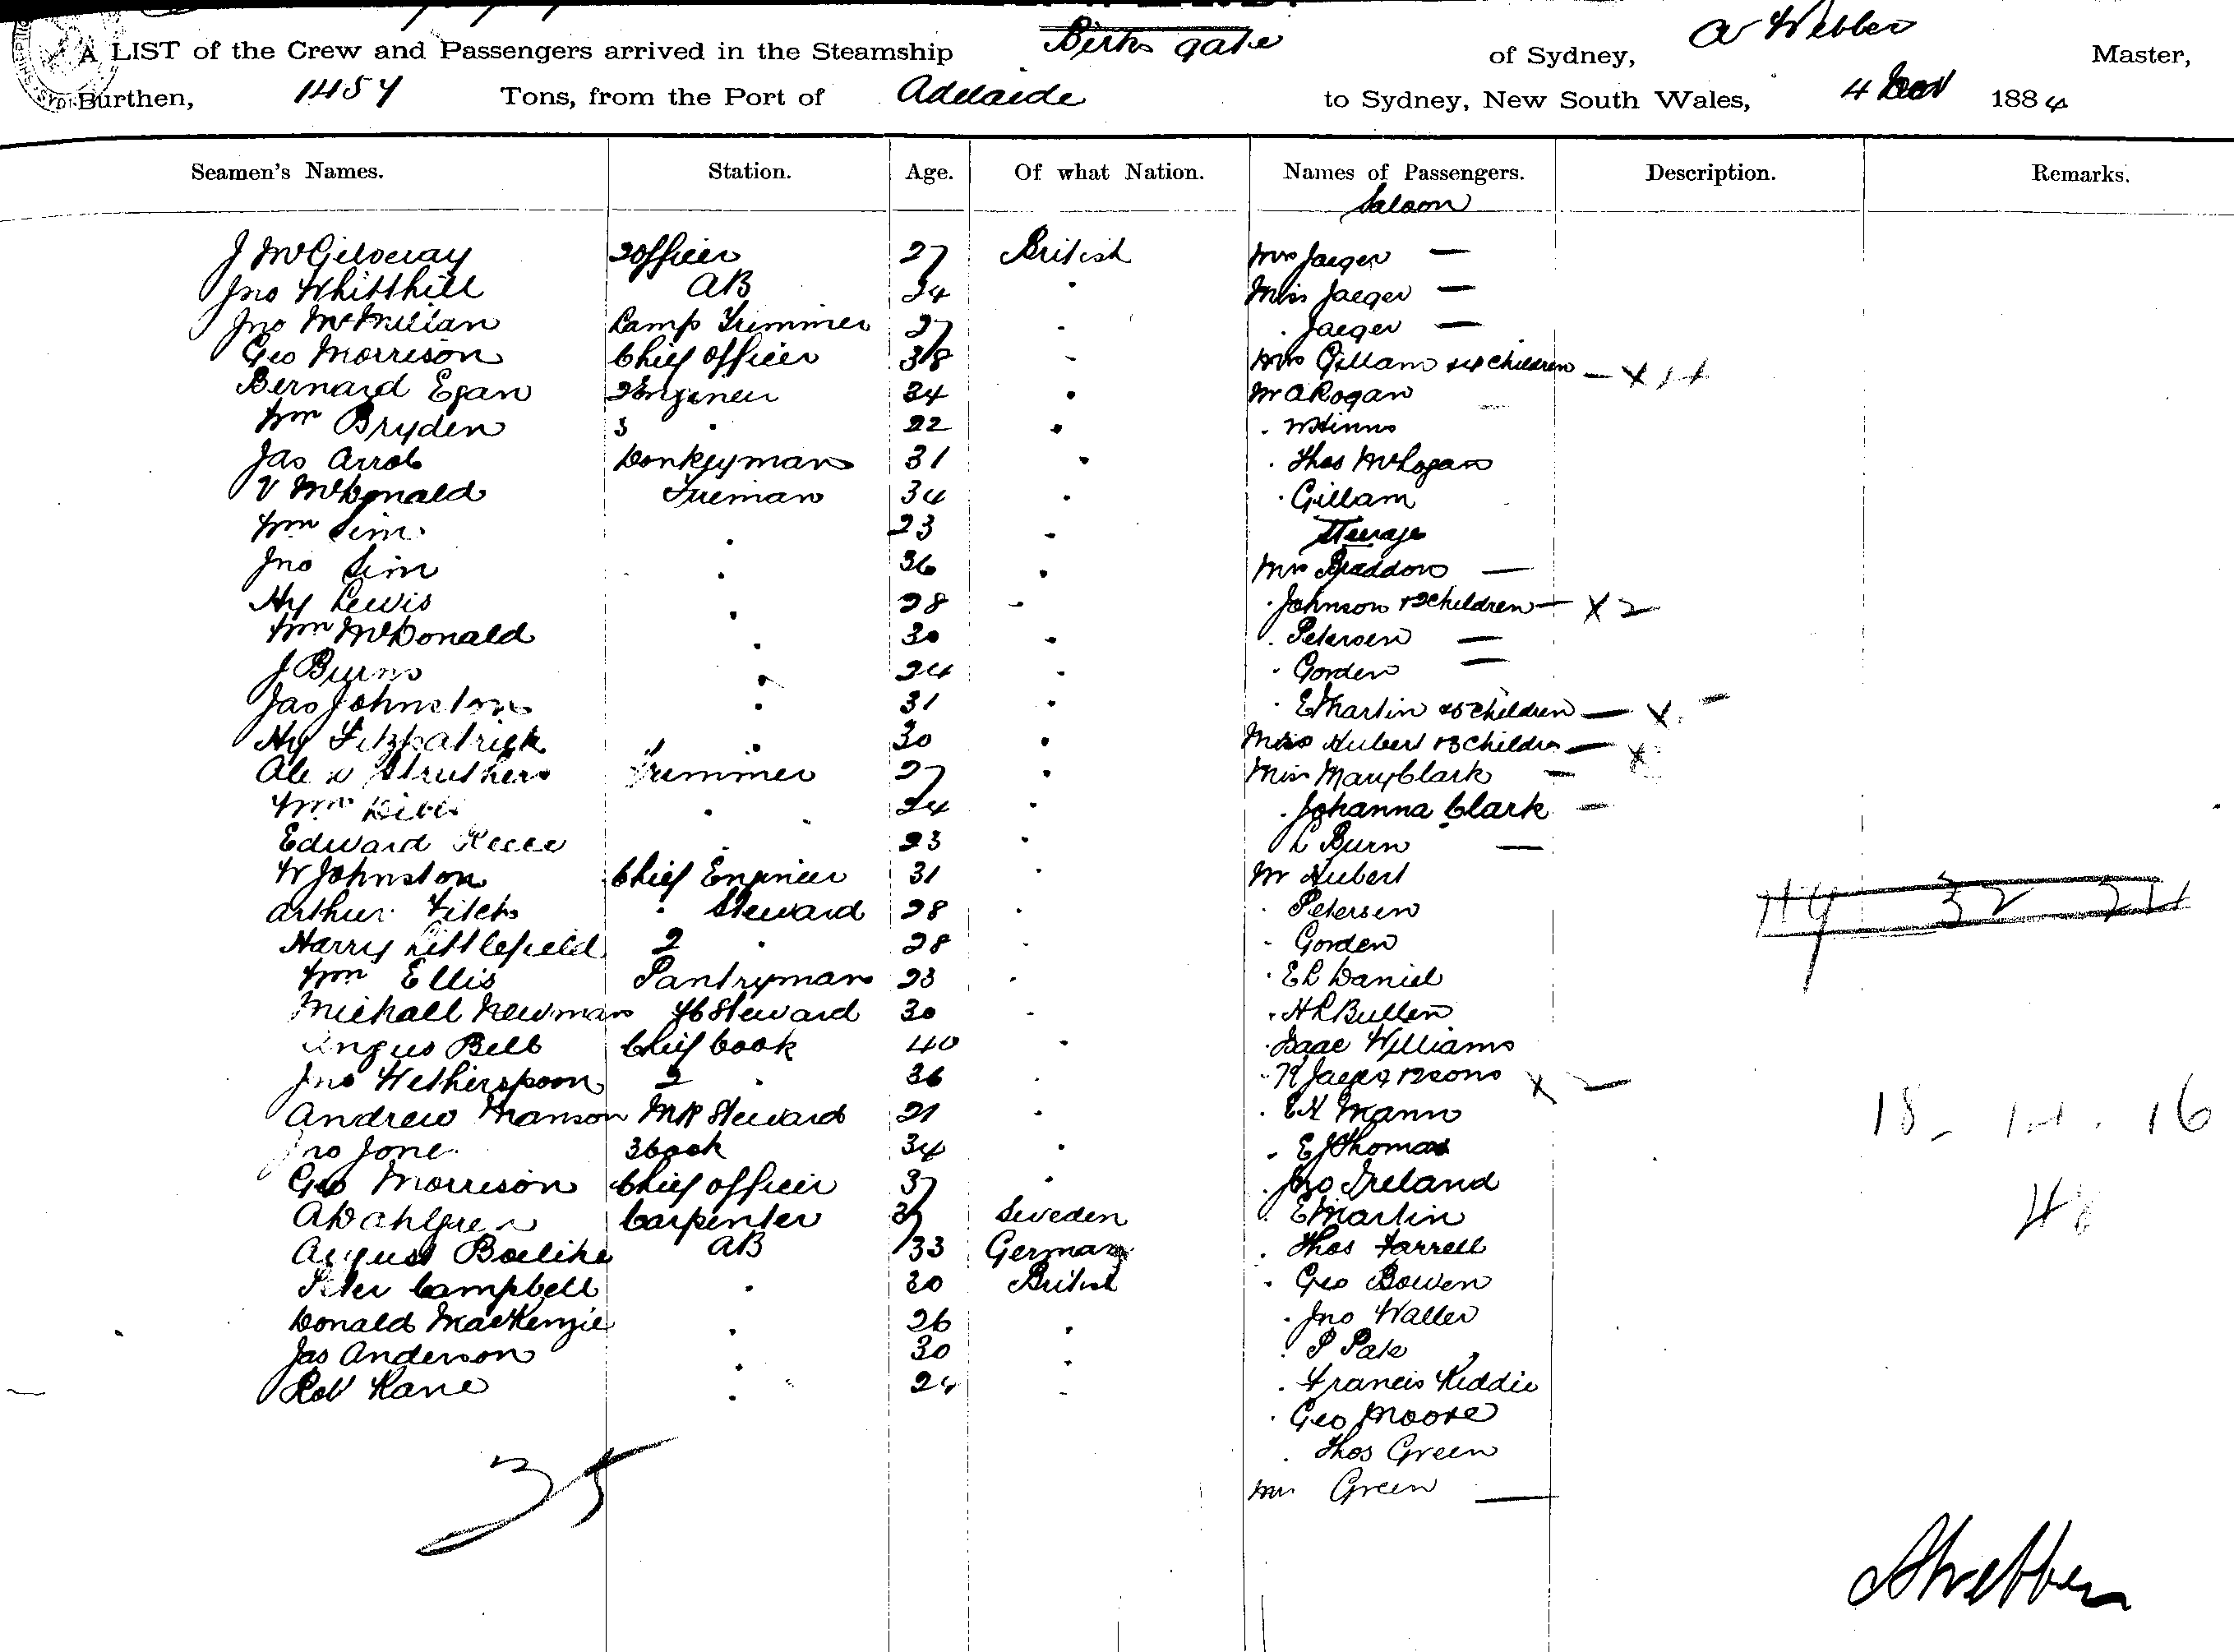 A LIST of the Crew and Passengers arrived in the Steamship Birksgate of Sydney, A Webber Master,
Burthen, 1457 Tons, from the Port of Adelaide to Sydney, New South Wales, 4 1884
Seamen's Names. Station. Age. Of what Nation. Names of Passengers. Description. Remarks.
Saloon
J McGilveray 2 officer 27 British Mrs Jaeger —
Jno Whitthill AB 24 " Miss Jaeger —
Jno McMillan Lamp Trimmer 27 " " Jaeger —
Geo Morrison Chief officer 38 " Mrs Gillam & 4 children — x
Bernard Egan 2 Engineer 34 " Mr A Rogan
Wm Bryden 3 " 22 "
Jas Arrol Donkeyman 31 " " Thos McLogan
V McDonald Fireman 34 " " Gillam
Wm Sim " 23 " Steerage
Jno Sim " 36 " Mrs —
Hy Lewis " 28 " " Johnson & 2 children — x 2
Wm McDonald " 30 " " Petersen —
J Burns " 24 " " Gorden —
Jas Johnston " 31 " " E Martin & 5 children — x
Hy Fitzpatrick " 30 " Mrs Hubert & 3 children — x
Alex Struthers Trimmer 27 " Miss Mary Clark —
Wm " 24 " " Johanna Clark —
Edward Reece " 23 " " L Burn —
W Johnston Chief Engineer 31 " Mr Hubert
Arthur Fitch " Steward 28 " " Petersen
Harry Littlefield 2 " 28 " " Gorden
Wm Ellis Pantryman 23 " " E L Daniel
Michall Newman Steward 30 " " H L Bullen
Angus Bell Chief Cook 40 " " Isaac Williams
Jno Wetherspoon 2 " 36 " " R Jaeger & 2 sons x 2
Andrew Manson MR Steward 21 " " E H Mann
Jno Jone 3 Cook 34 " " E J Thomas
Geo Morrison Chief officer 37 " " Jno Ireland
A Dahlgren Carpenter 37 Sweden " E Martin
August Boelike AB 33 German " Thos Farrell
Peter Campbell " 30 British " Geo Bowen
Donald MacKenzie " 26 " " Jno Waller
Jas Anderson " 30 " " P Pate
Robt Kane " 24 " " Francis Kiddie
" Geo Moore
" Thos Green
Mrs Green —
35
18 16
48
A Webber